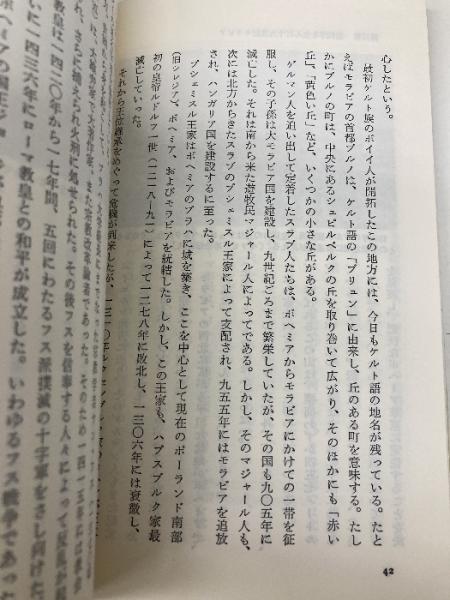 心したという。
最初ケルト族のボイイ人が開拓したこの地方には、今日もケルト語の地名が残っている。たと
えばモラビアの首都ブルノは、ケルト語の「ブリュン」に由来し、丘のある町を意味する。たし
かにブルノの町は、中央にあるシュピルベルクの丘を取り巻いて広がり、そのほかにも「赤い
丘」、「黄色い丘」など、いくつかの小さな丘がある。
ゲルマン人を追い出して定着したスラブ人たちは、ボヘミアからモラビアにかけての一帯を征
服し、その子孫は大モラビア国を建設し、九世紀ごろまで繁栄していたが、その国も九〇五年に
滅亡した。それは南から来た遊牧民マジャール人によってである。しかし、そのマジャール人も、
次には北方からきたスラブのプシェミスル王家によって支配され、九五五年にはモラビアを追放
され、ハンガリア国を建設するに至った。
プシェミスル王家はボヘミアのプラハに城を築き、ここを中心として現在のポーランド南部
(旧シレジア)、ボヘミア、およびモラビアを統轄した。しかし、この王家も、ハプスブルク家最
初の皇帝ルドルフ一世(一二一八―九一)によって一二七八年に敗北し、一三〇六年には衰微し、
滅亡していった。
それから王位継承をめぐって危機が到来したが、一三一〇年
また宗教改革論者であった。そのため一四一五年には
さらに捕えられ火刑に処せられた。その後、フスを信奉する人々によって
教皇は一四二〇年から一七年間、五回にわたるフス派撲滅の十字軍をさし向けた。
一四三六年にローマ教皇との和平が成立した。いわゆるフス戦争であった
42